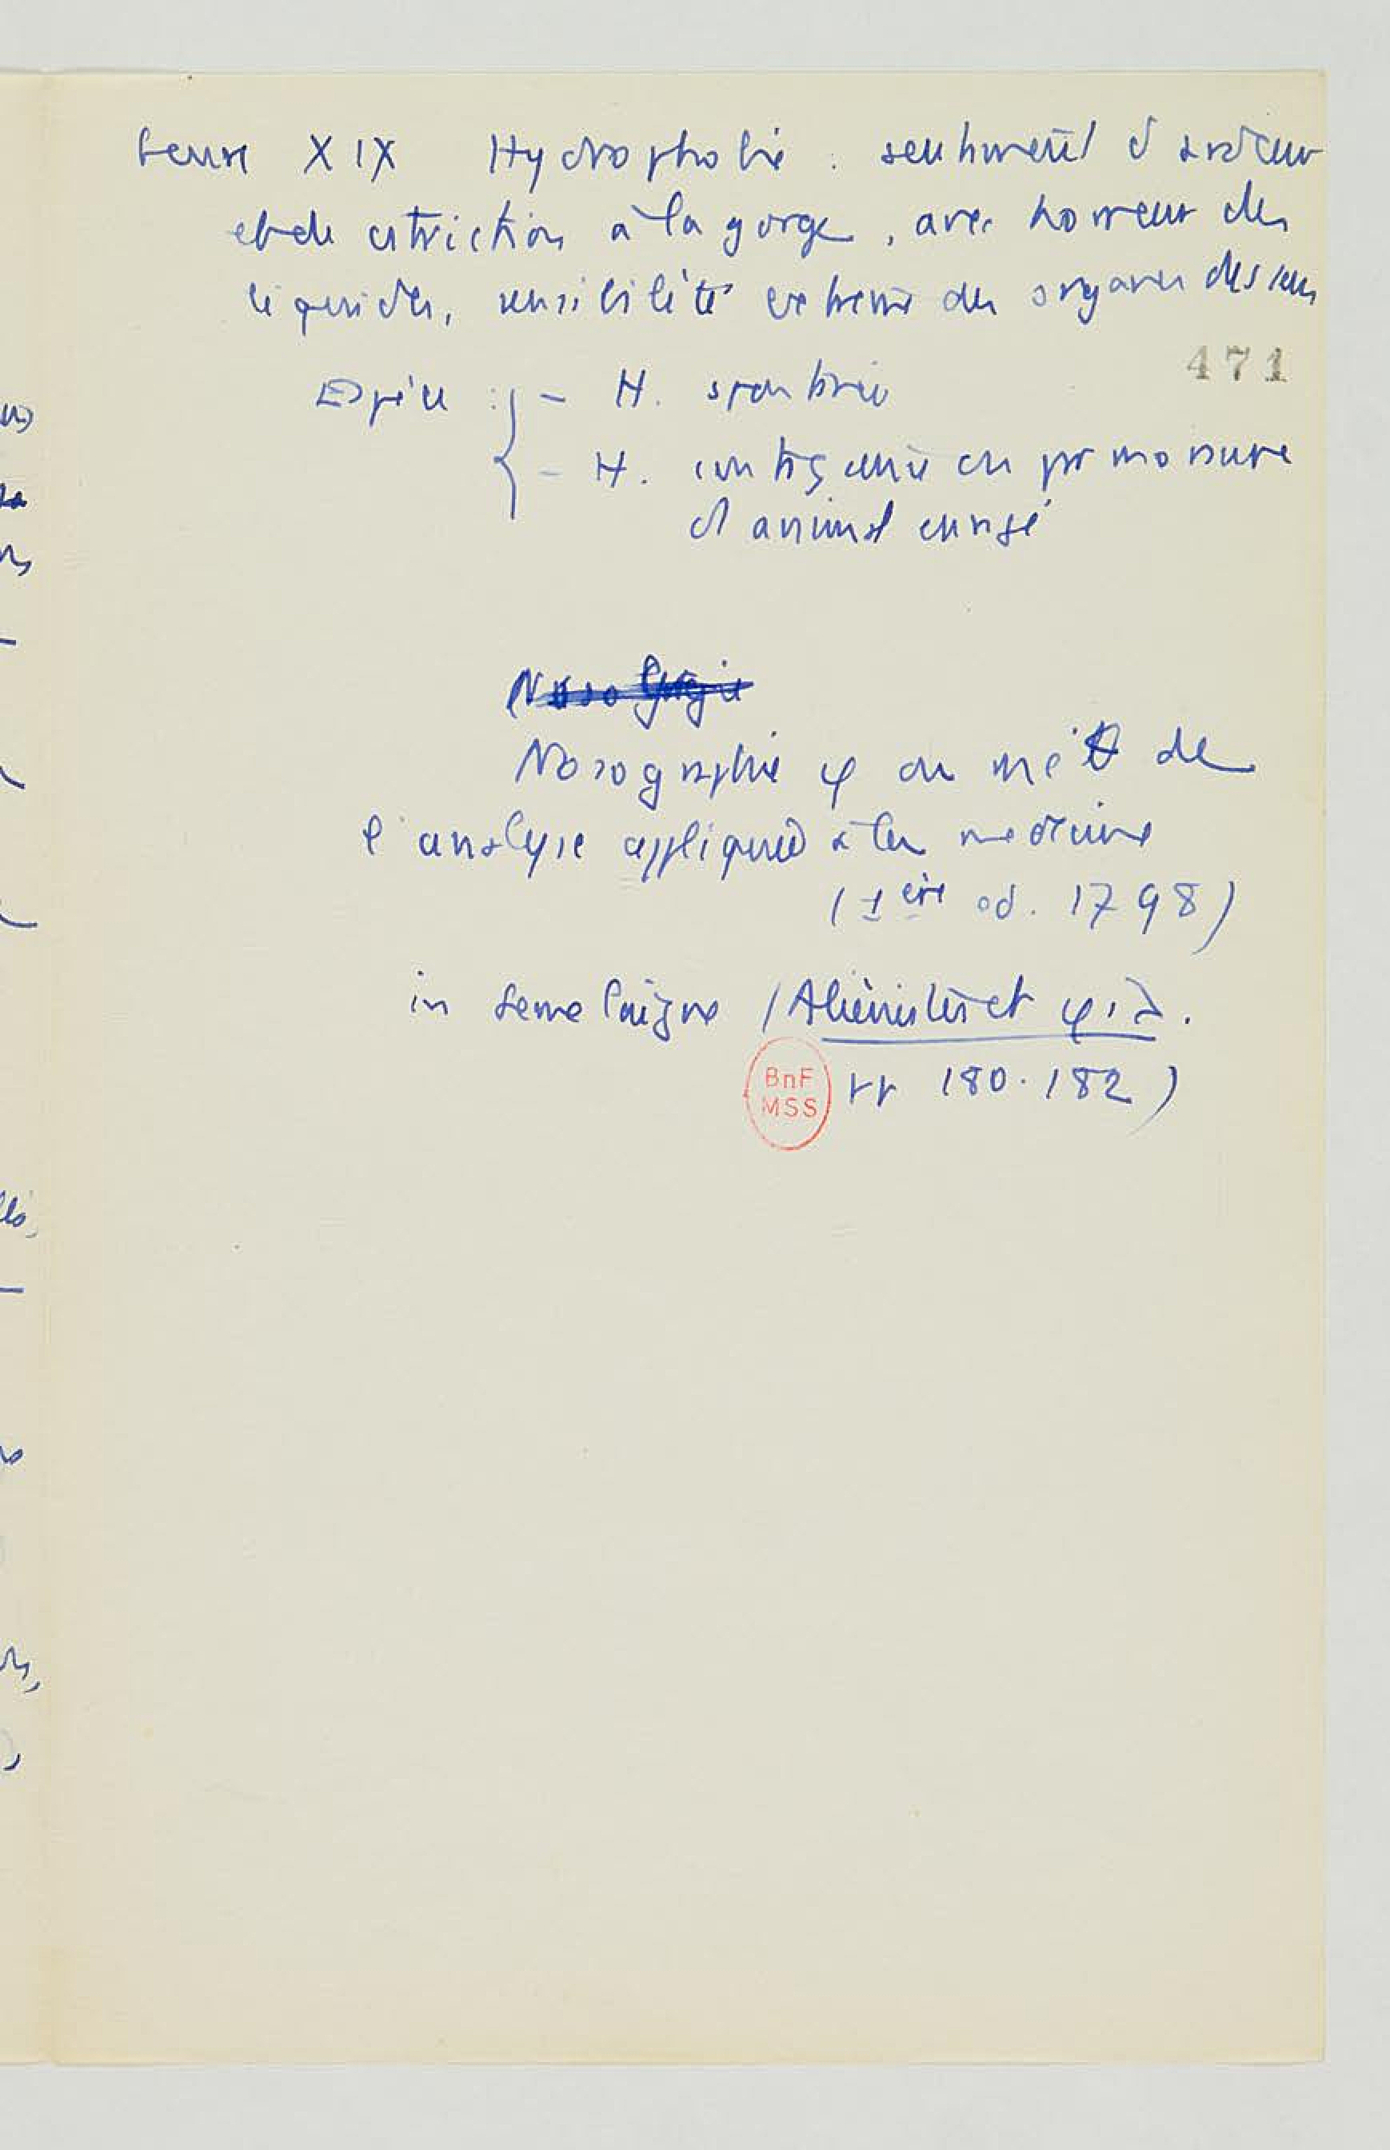 Genre XIX Hydrophobie : sentiment d'ardeur
et de astriction à la gorge, avec horreur des
liquides, sensibilité extrême des organes des sens
471
Espèces : { – H. spontanée
– H. contagieuse ou par morsure
d'animal enragé
Nosologie
Nosographie φ ou méθ de
l'analyse appliquée à la médecine
(1ère éd. 1798)
in Semelaigne (Aliénistes et φ,
BnF
MSS
pp 180.182)